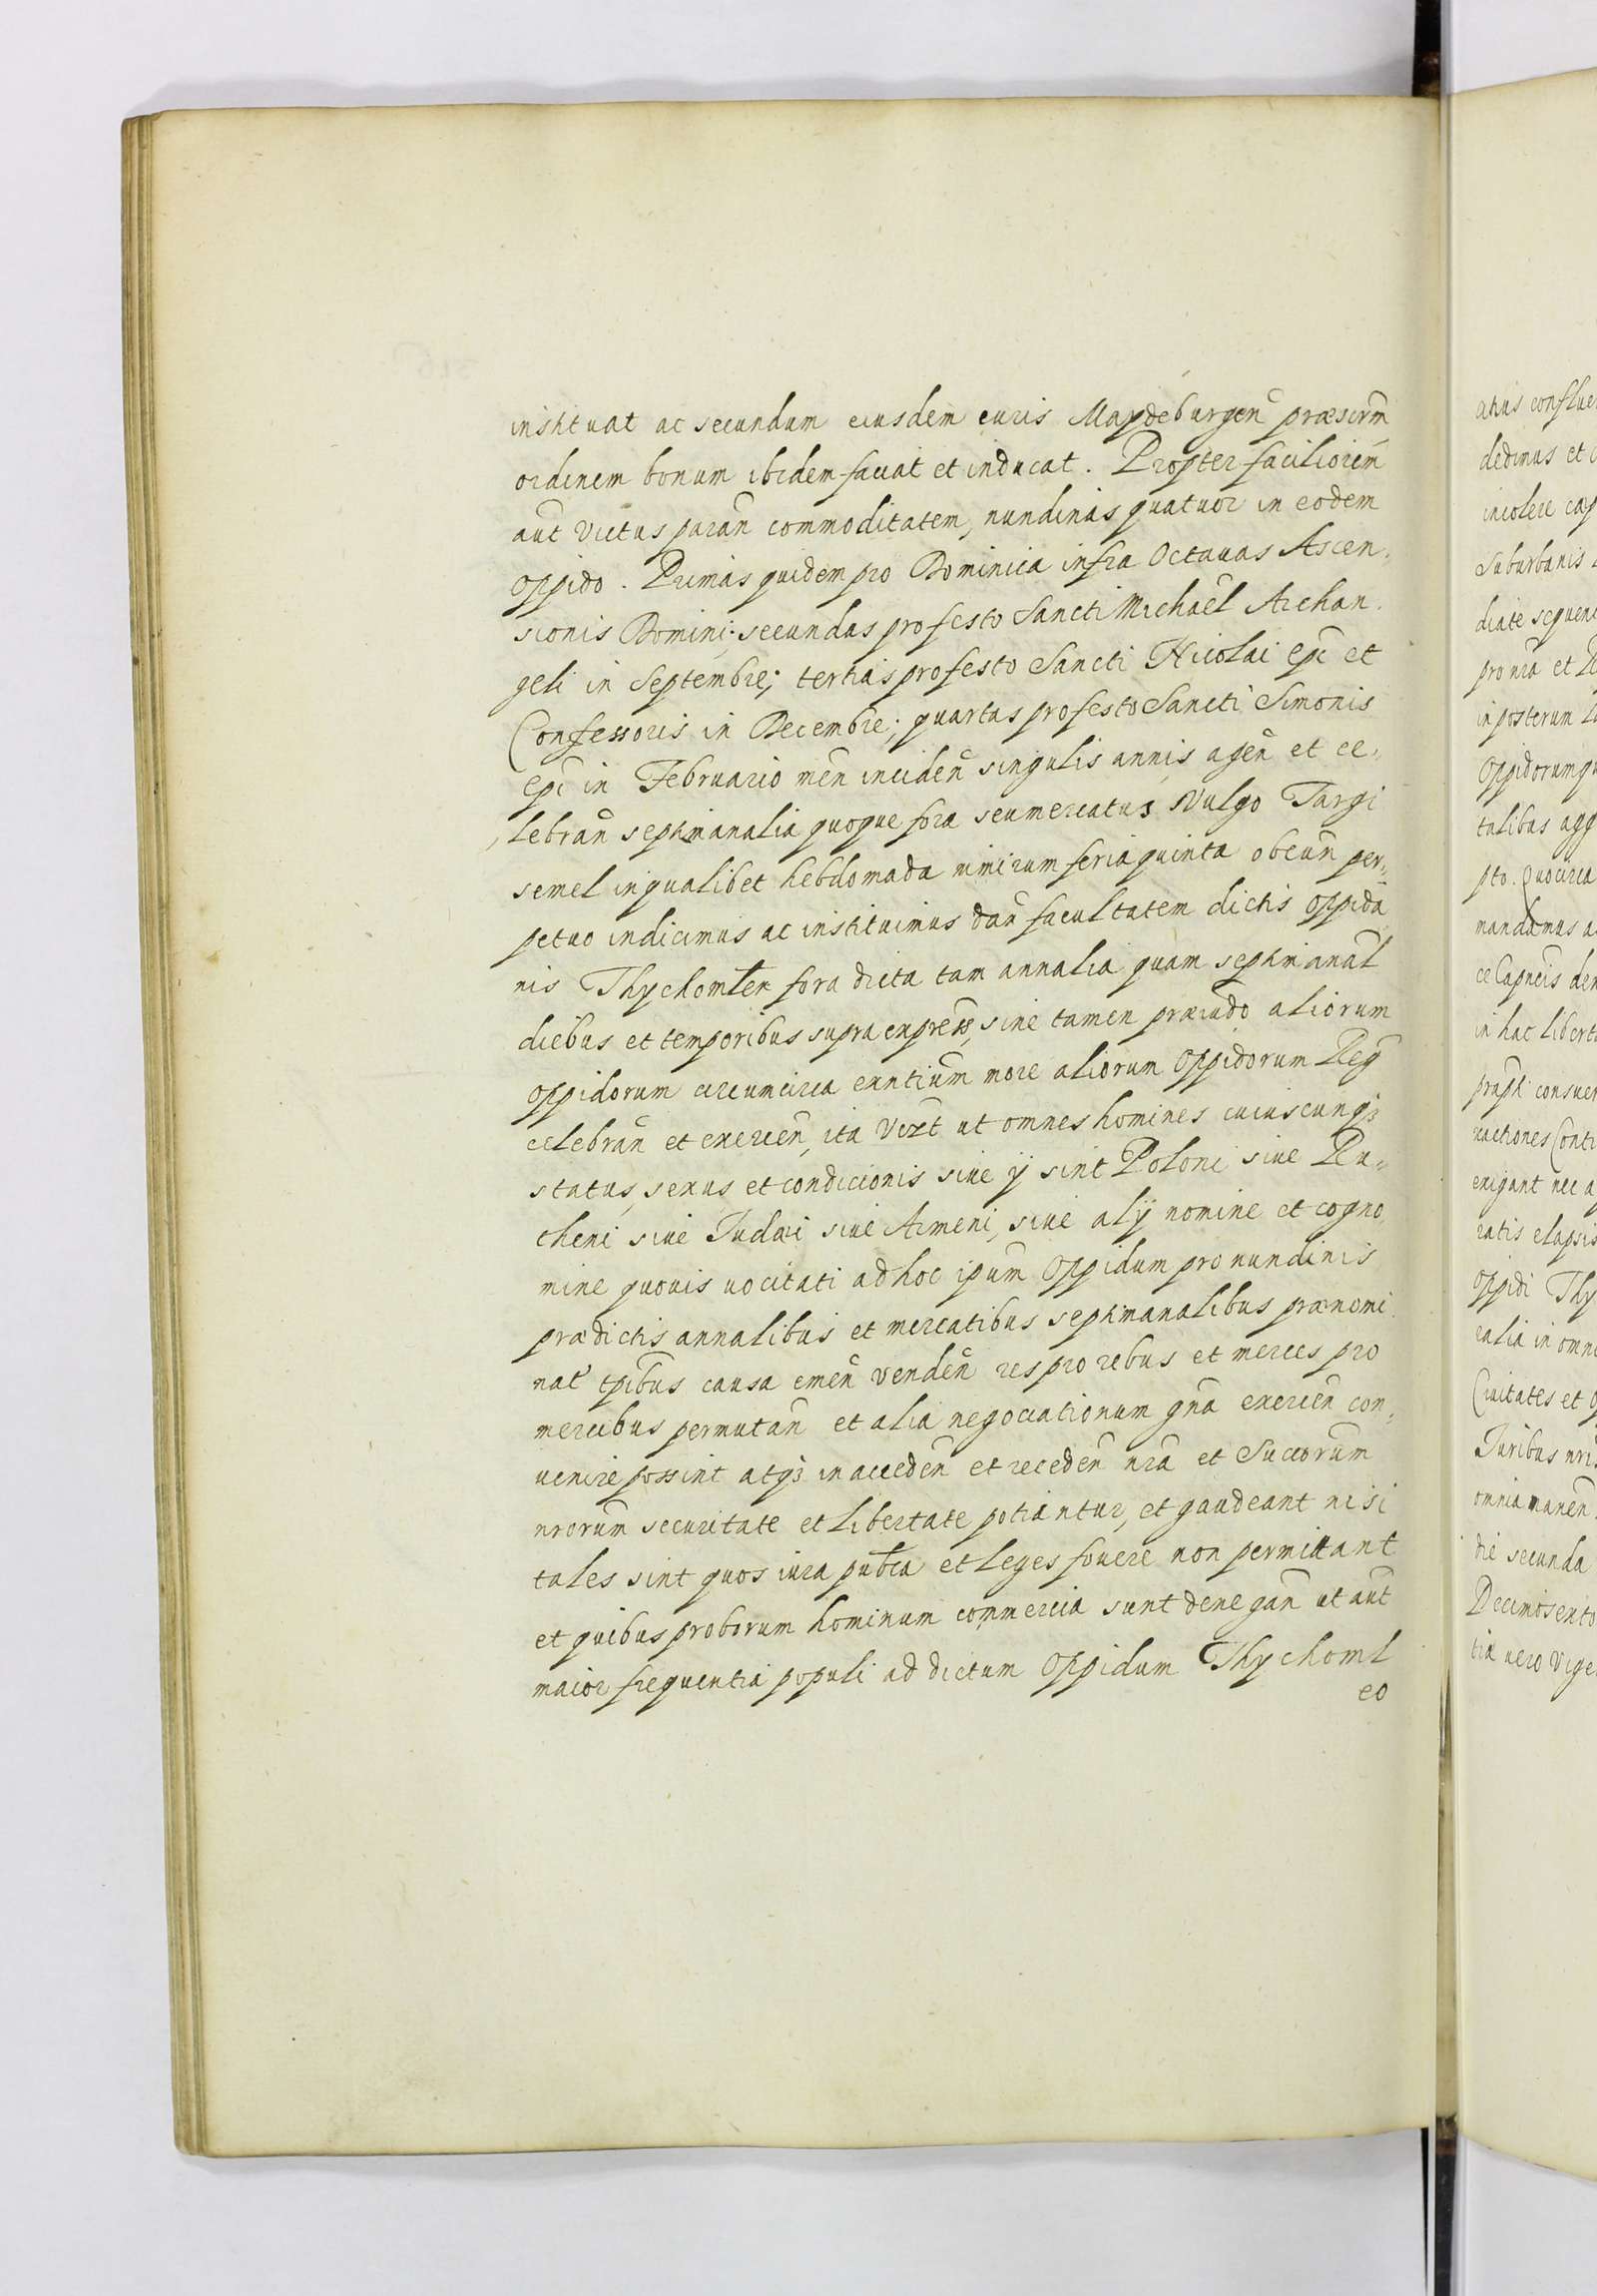 instituat ac secundum eiusdem iuris Maydeburgen̄ præscrm̄
ordinem bonum ibidem faciat et inducat. Propter faciliorem̄
aut̄ victus paran̄ commoditatem, nundinas quatuor in eodem
oppido. Primas quidem pro Dominica infra Octauas Ascen,
sionis Domini; secundas pro festo Sancti Michaēl Archan.
geli in Septembre; tertias pro festo Sancti Nicolai Ep̄i et
Confessoris in Decembre; quartas pro festo Sancti Simonis
Ep̄i in Februario men̄ inciden̄ singulis annis agen̄ et ce,
lebran̄ septimanalia quoque fora seu mercatus Vulgo Targi
semel in qualibet hebdomada nimirum feria quinta obeun̄ per,
petuo indicimus ac instituimus dan̄ facultatem dictis oppida
nis Thychomlen fora dicta tam annalia quam septimanal̄
diebus et temporibus supra express̄, sine tamen præiudo aliorum
oppidorum circumcirca exntium̄ more aliorum Oppidorum Reḡ
celebran̄ et exercen̄, ita Vert̄ ut omnes homines cuiuscunqꝫ
status, sexus et condicionis siue ÿ sint Poloni siue Ru,,
theni siue Judæi siue Armeni, siue alÿ nomine et cogno
mine quouis uocitati ad hoc ipum̄ Oppidum pro nundinis
prædictis annalibus et mercatibus septimanalibus prænomi
nat̄ tp̄ibus causa emen̄ venden̄ res pro rebus et merces pro
mercibus permutan̄ et alia negociationum gn̄a exercen̄ con,
uenire possint atqꝫ in acceden̄ et receden̄ nr̄a et Succorum̄
nrorum̄ securitate et libertate potiantur, et gaudeant nisi
tales sint quos iura pub̄ca et leges fouere non permittant
et quibus proborum hominum commercia sunt denegan̄ ut aut̄
maior frequentia populi ad dictum Oppidum Thychoml
eo